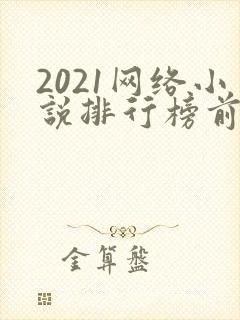 2021网络小
説排行榜前
金算盤